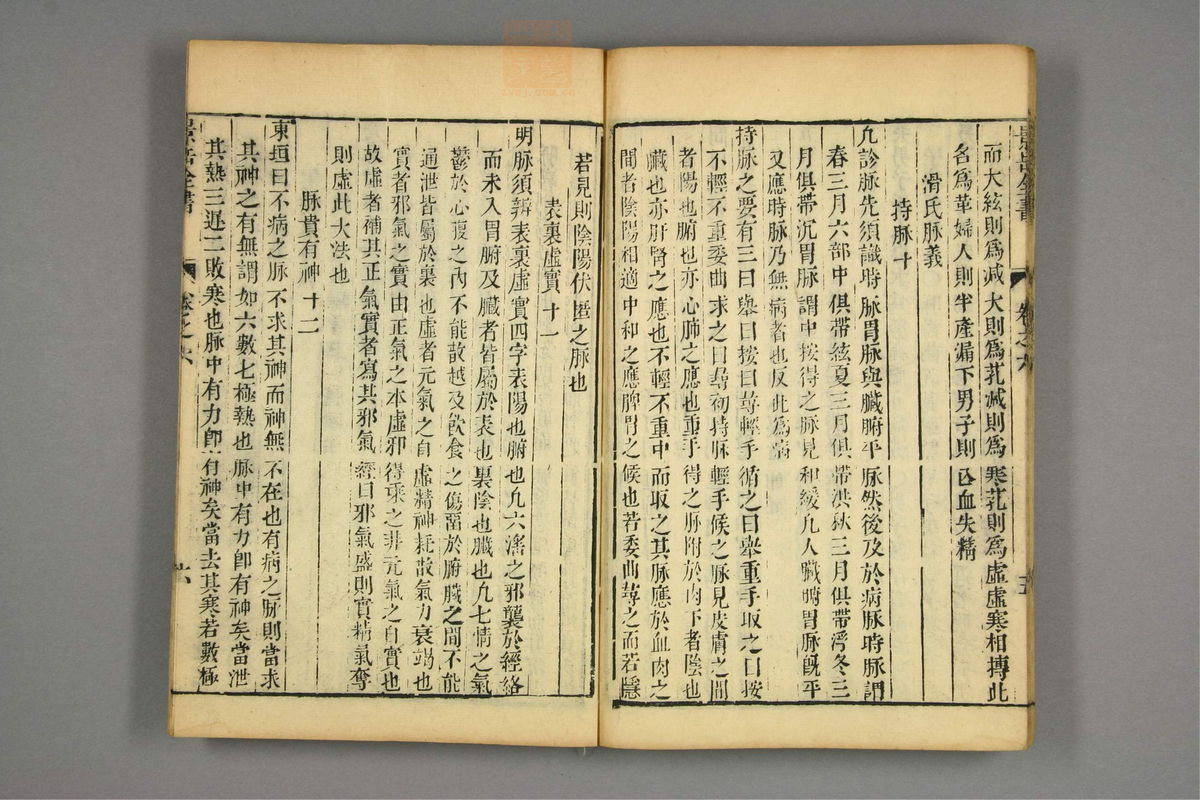 而大絃則為減大則為芤減則為寒芤則為虛虛寒相摶此
名為革婦人則半產漏下男子則亡血失精
滑氏脉義
持脉十
凢診脉先須識時脉胃脉與臟腑平脉然後及於病脉時脉謂
春三月六部中俱帶絃夏三月俱帶洪秋三月俱帶浮冬三
月俱帶沉胃脉謂中按得之脉見和緩凢人臟腑胃脉旣平
又應時脉乃無病者也反此為病
持脉之要有三曰舉曰按曰尋輕手循之曰舉重手取之曰按
不輕不重委曲求之曰尋初持脉輕手候之脉見皮膚之間
者陽也腑也亦心肺之應也重手得之脉附於肉下者陰也
臟也亦肝腎之應也不輕不重中而取之其脉應於血肉之
間者陰陽相適中和之應脾胃之候也若委曲尋之而若隱
景岳全書
卷之六
五
若見則陰陽伏匿之脉也
表裏虛實十一
明脉須辨表裏虛實四字表陽也腑也凢六滛之邪襲於經絡
而未入胃腑及臟者皆屬於表也裏陰也臟也凢七情之氣
鬱於心腹之內不能散越及飲食之傷畱於腑臟之間不能
通泄皆屬於裏也虛者元氣之自虛精神耗散氣力衰竭也
實者邪氣之實由正氣之本虛邪得乘之非元氣之自實也
故虛者補其正氣實者寫其邪氣經曰邪氣盛則實精氣奪
則虛此大法也
脉貴有神十二
東垣曰不病之脉不求其神而神無不在也有病之脉則當求
其神之有無謂如六數七極熱也脉中有力卽有神矣當泄
其熱三遲二敗寒也脉中有力卽有神矣當去其寒若數極
景岳全書
卷之六
六